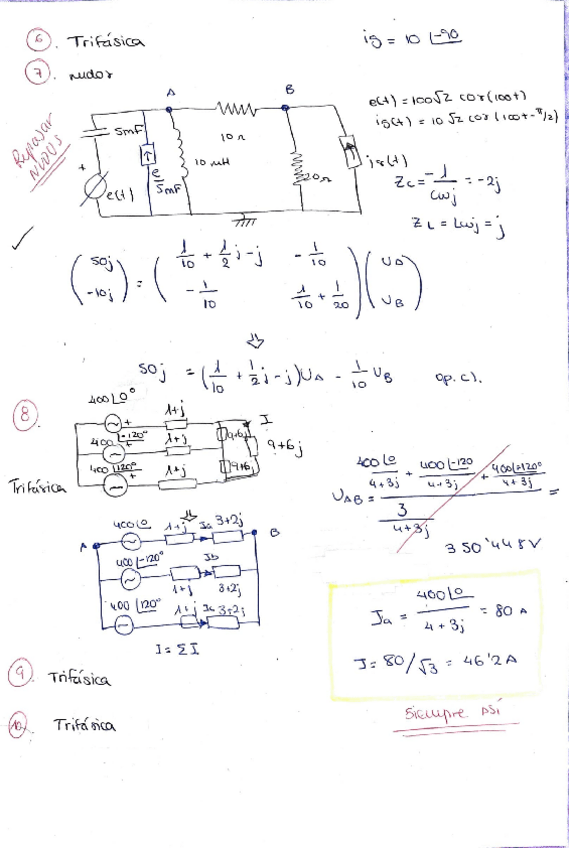 6. Trifásica
ig = 10 ∠-90
7. nudos
Repasar NUDOS
A
B
e(t) = 100√2 cos(100t)
ig(t) = 10√2 cos(100t-π/2)
5mF
10Ω
10 mH
20Ω
e(t)
e/5mF
ig(t)
Zc = -1/Cωj = -2j
ZL = Lωj = j
(50j / -10j) = (1/10 + 1/2 j - j   -1/10 / -1/10   1/10 + 1/20) (UA / UB)
50j = (1/10 + 1/2 j - j)UA - 1/10 UB   op. c).
8
400∠0°
1+j
I
400∠-120°
1+j
9+6j
9+6j
400∠120°
1+j
9+6j
Trifásica
UAB = (400∠0/4+3j + 400∠-120/4+3j + 400∠120°/4+3j) / (3/4+3j) =
350'448V
A
400∠0
1+j
Ja
3+2j
B
400∠-120°
1+j
Jb
3+2j
400∠120°
1+j
Jc
3+2j
I = ΣI
Ja = 400∠0/4+3j = 80 A
J = 80/√3 = 46'2 A
Siempre ASÍ
9. Trifásica
10. Trifásica